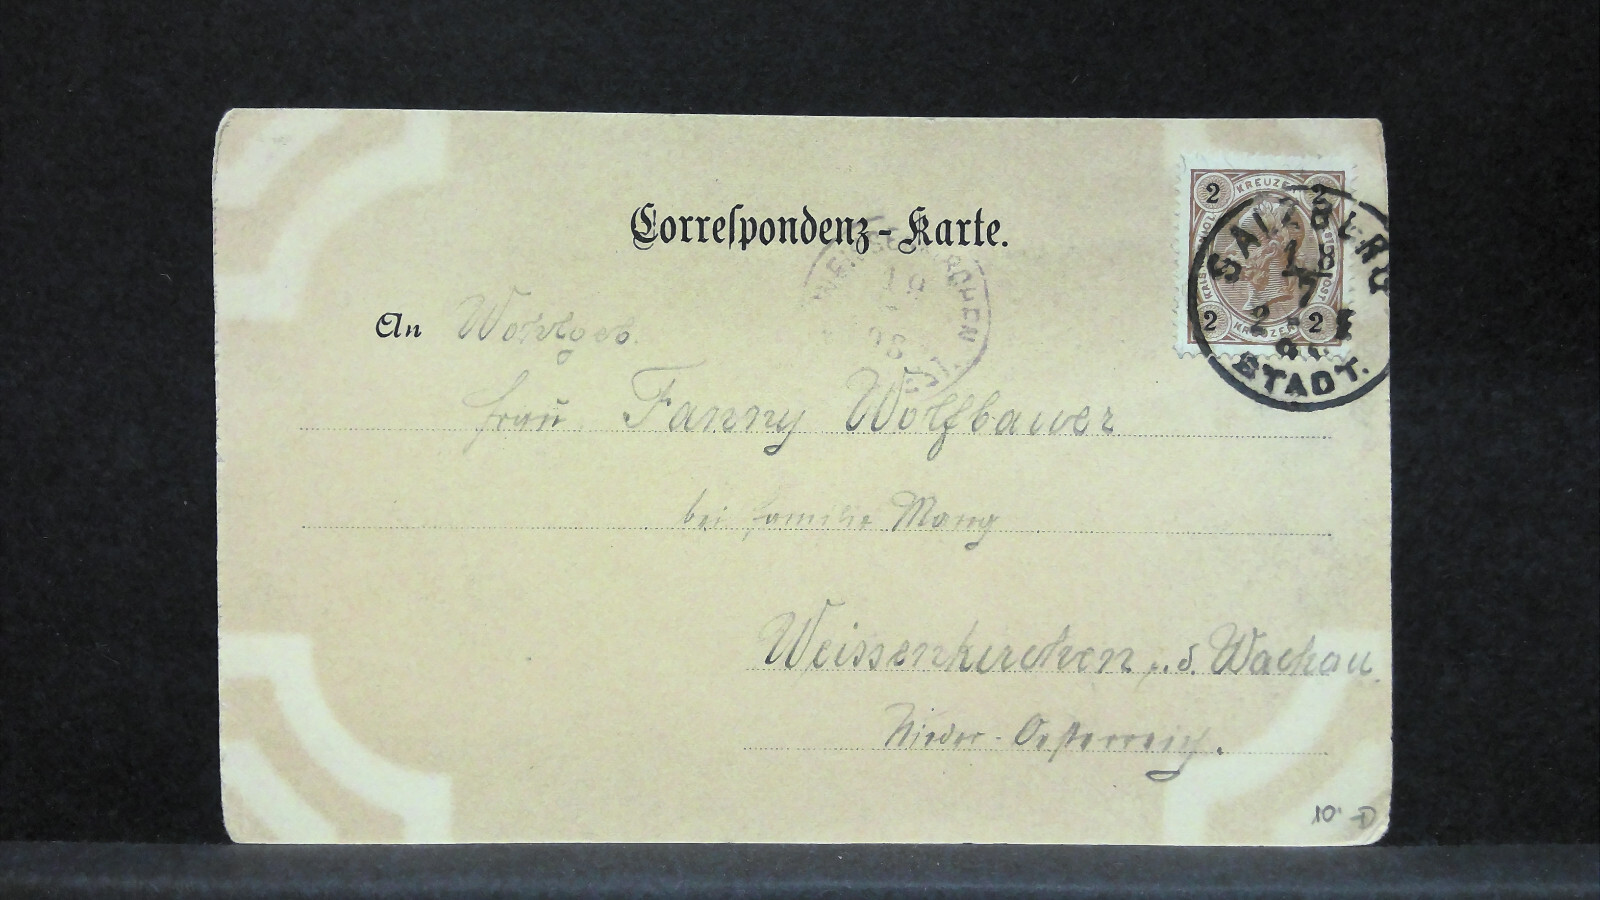 Correspondenz-Karte.
An Wohlgeb.
Frau Fanny Wolfbauer
bei Familie Mang
Weissenkirchen i. d. Wachau.
Nieder-Oesterreich.
2 KREUZER 2
2 KREUZER 2
SALZBURG
18
7
STADT.
19
98
10.- D